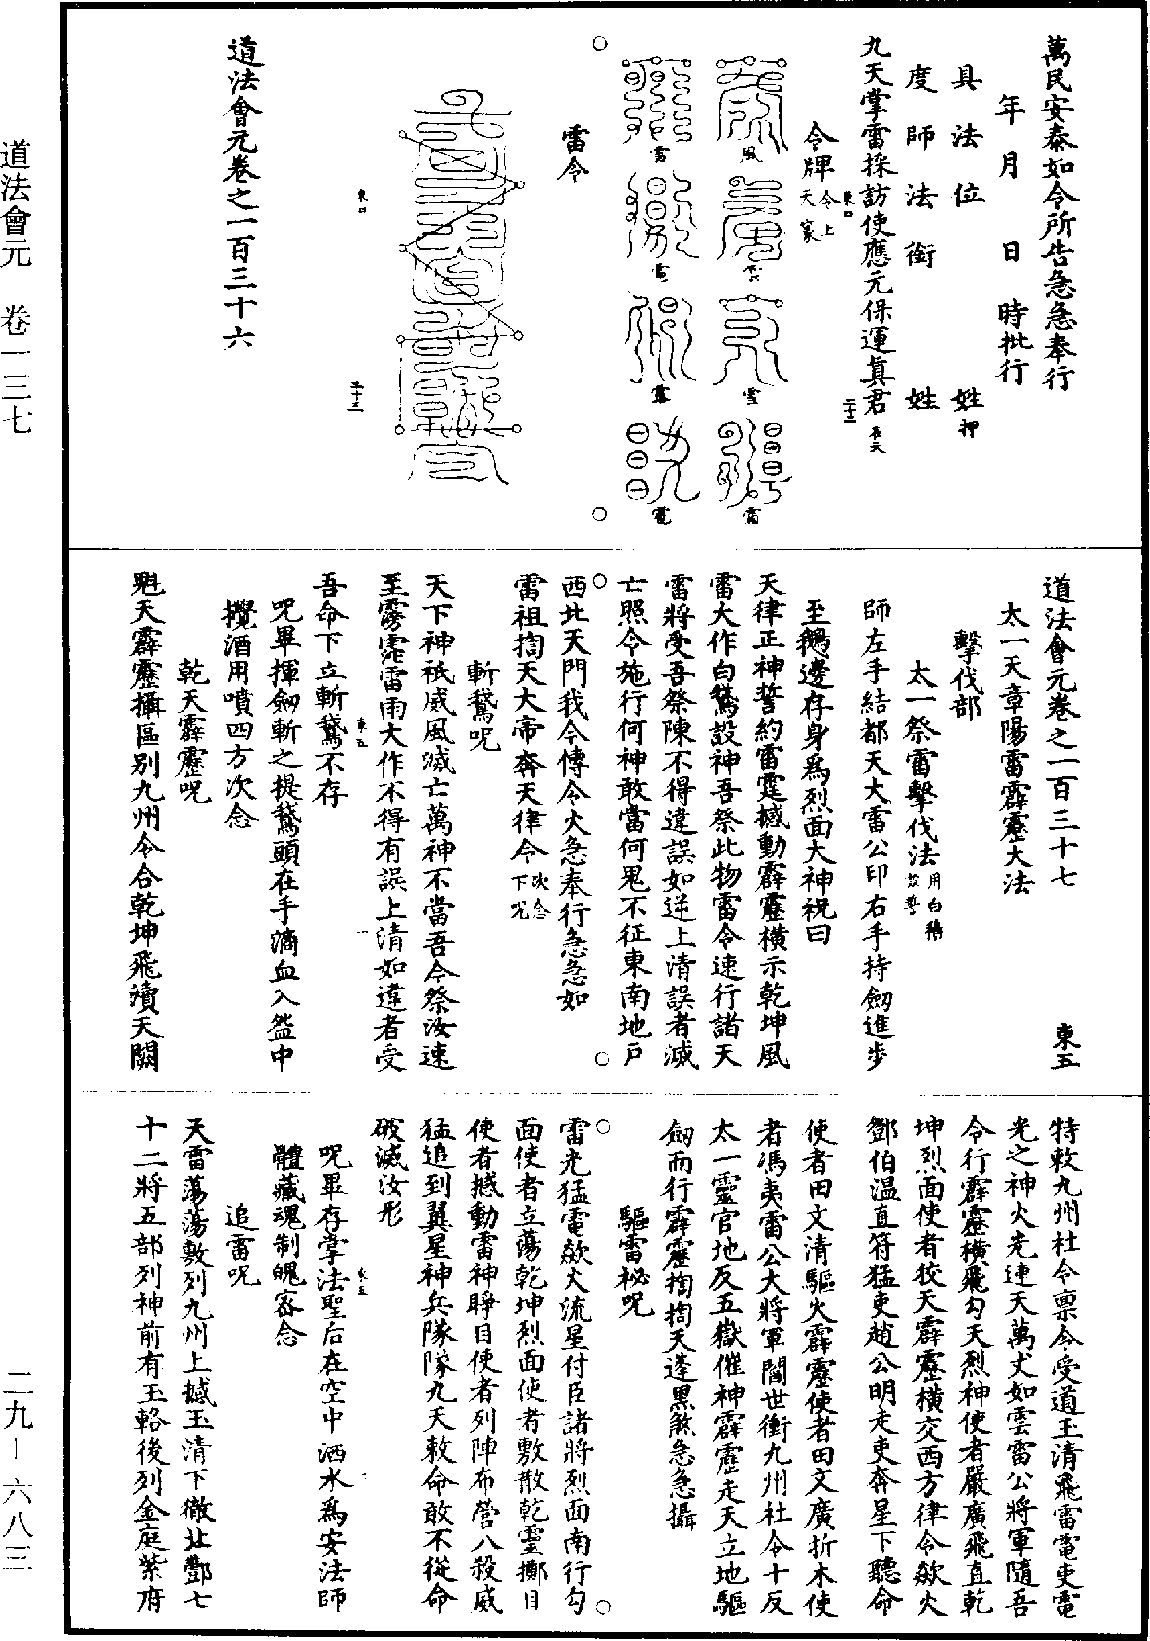 萬民安泰如令所告急急奉行
年月日時批行
具法位姓押
度師法銜姓
九天掌雷採訪使應元保運真君
二十三
令牌
令上
天篆
風
雲
雪
雷
雷令
道法會元卷之一百三十六
二十三
道法會元卷之一百三十七
東五
太一天章陽雷霹靂大法
擊伐部
太一祭雷擊伐法
用白鵝
師左手結都天大雷公印右手持劒進步
至鵝邊存身為烈面大神祝曰
天律正神誓約雷霆撼動霹靂橫示乾坤風
雷大作白鵞設神吾祭此物雷令速行諸天
雷將受吾祭陳不得違誤如逆上清誤者滅
亡照令施行何神敢當何鬼不征東南地戶
西北天門我今傳令火急奉行急急如
雷祖掏天大帝奔天律令
次念
下呪
斬鵞呪
天下神祇威風滅亡萬神不當吾令祭汝速
至霶霈雷雨大作不得有誤上清如違者受
吾命下立斬鵞不存
呪畢揮劒斬之提鵞頭在手滴血入盆中
攪酒用噴四方次念
乾天霹靂呪
魁天霹靂攝區別九州令合乾坤飛瀆天關
特敕九州社令稟令受道玉清飛雷電吏電
光之神火光連天萬丈如雲雷公將軍隨吾
令行霹靂橫飛勾天烈神使者嚴廣飛直乾
坤烈面使者狡天霹靂橫交西方律令歘火
鄧伯温直符猛吏趙公明走吏奔星下聽命
使者田文清驅火霹靂使者田文廣折木使
者馮夷雷公大將軍閻世衝九州社令十反
太一靈官地反五嶽催神霹靂走天立地驅
劒而行霹靂掏掏天蓬黑煞急急攝
驅雷祕呪
雷光猛電歘火流星付臣諸將烈面南行勾
面使者立蕩乾坤烈面使者敷散乾靈擲目
使者撼動雷神睜目使者列陣布營八殺威
猛追到翼星神兵隊隊九天敕命敢不從命
破滅汝形
呪畢存掌法聖后在空中洒水為安法師
體藏魂制魄密念
追雷呪
天雷蕩蕩敷列九州上撼玉清下徹北酆七
十二將五部列神前有玉輅後列金庭紫府
道法會元 卷一三七
二九－六八三